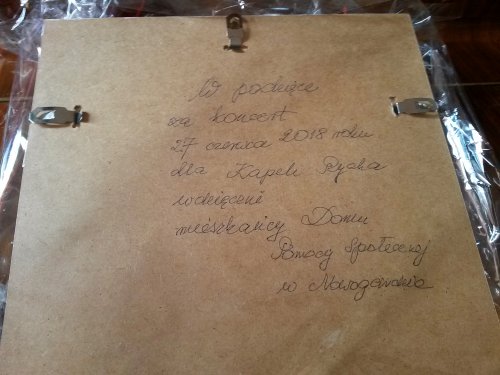 W podzięce
za koncert
27 czerwca 2018 roku
dla Kapeli Rycha
wdzięczni
mieszkańcy Domu
Pomocy Społecznej
w Nowogawinie